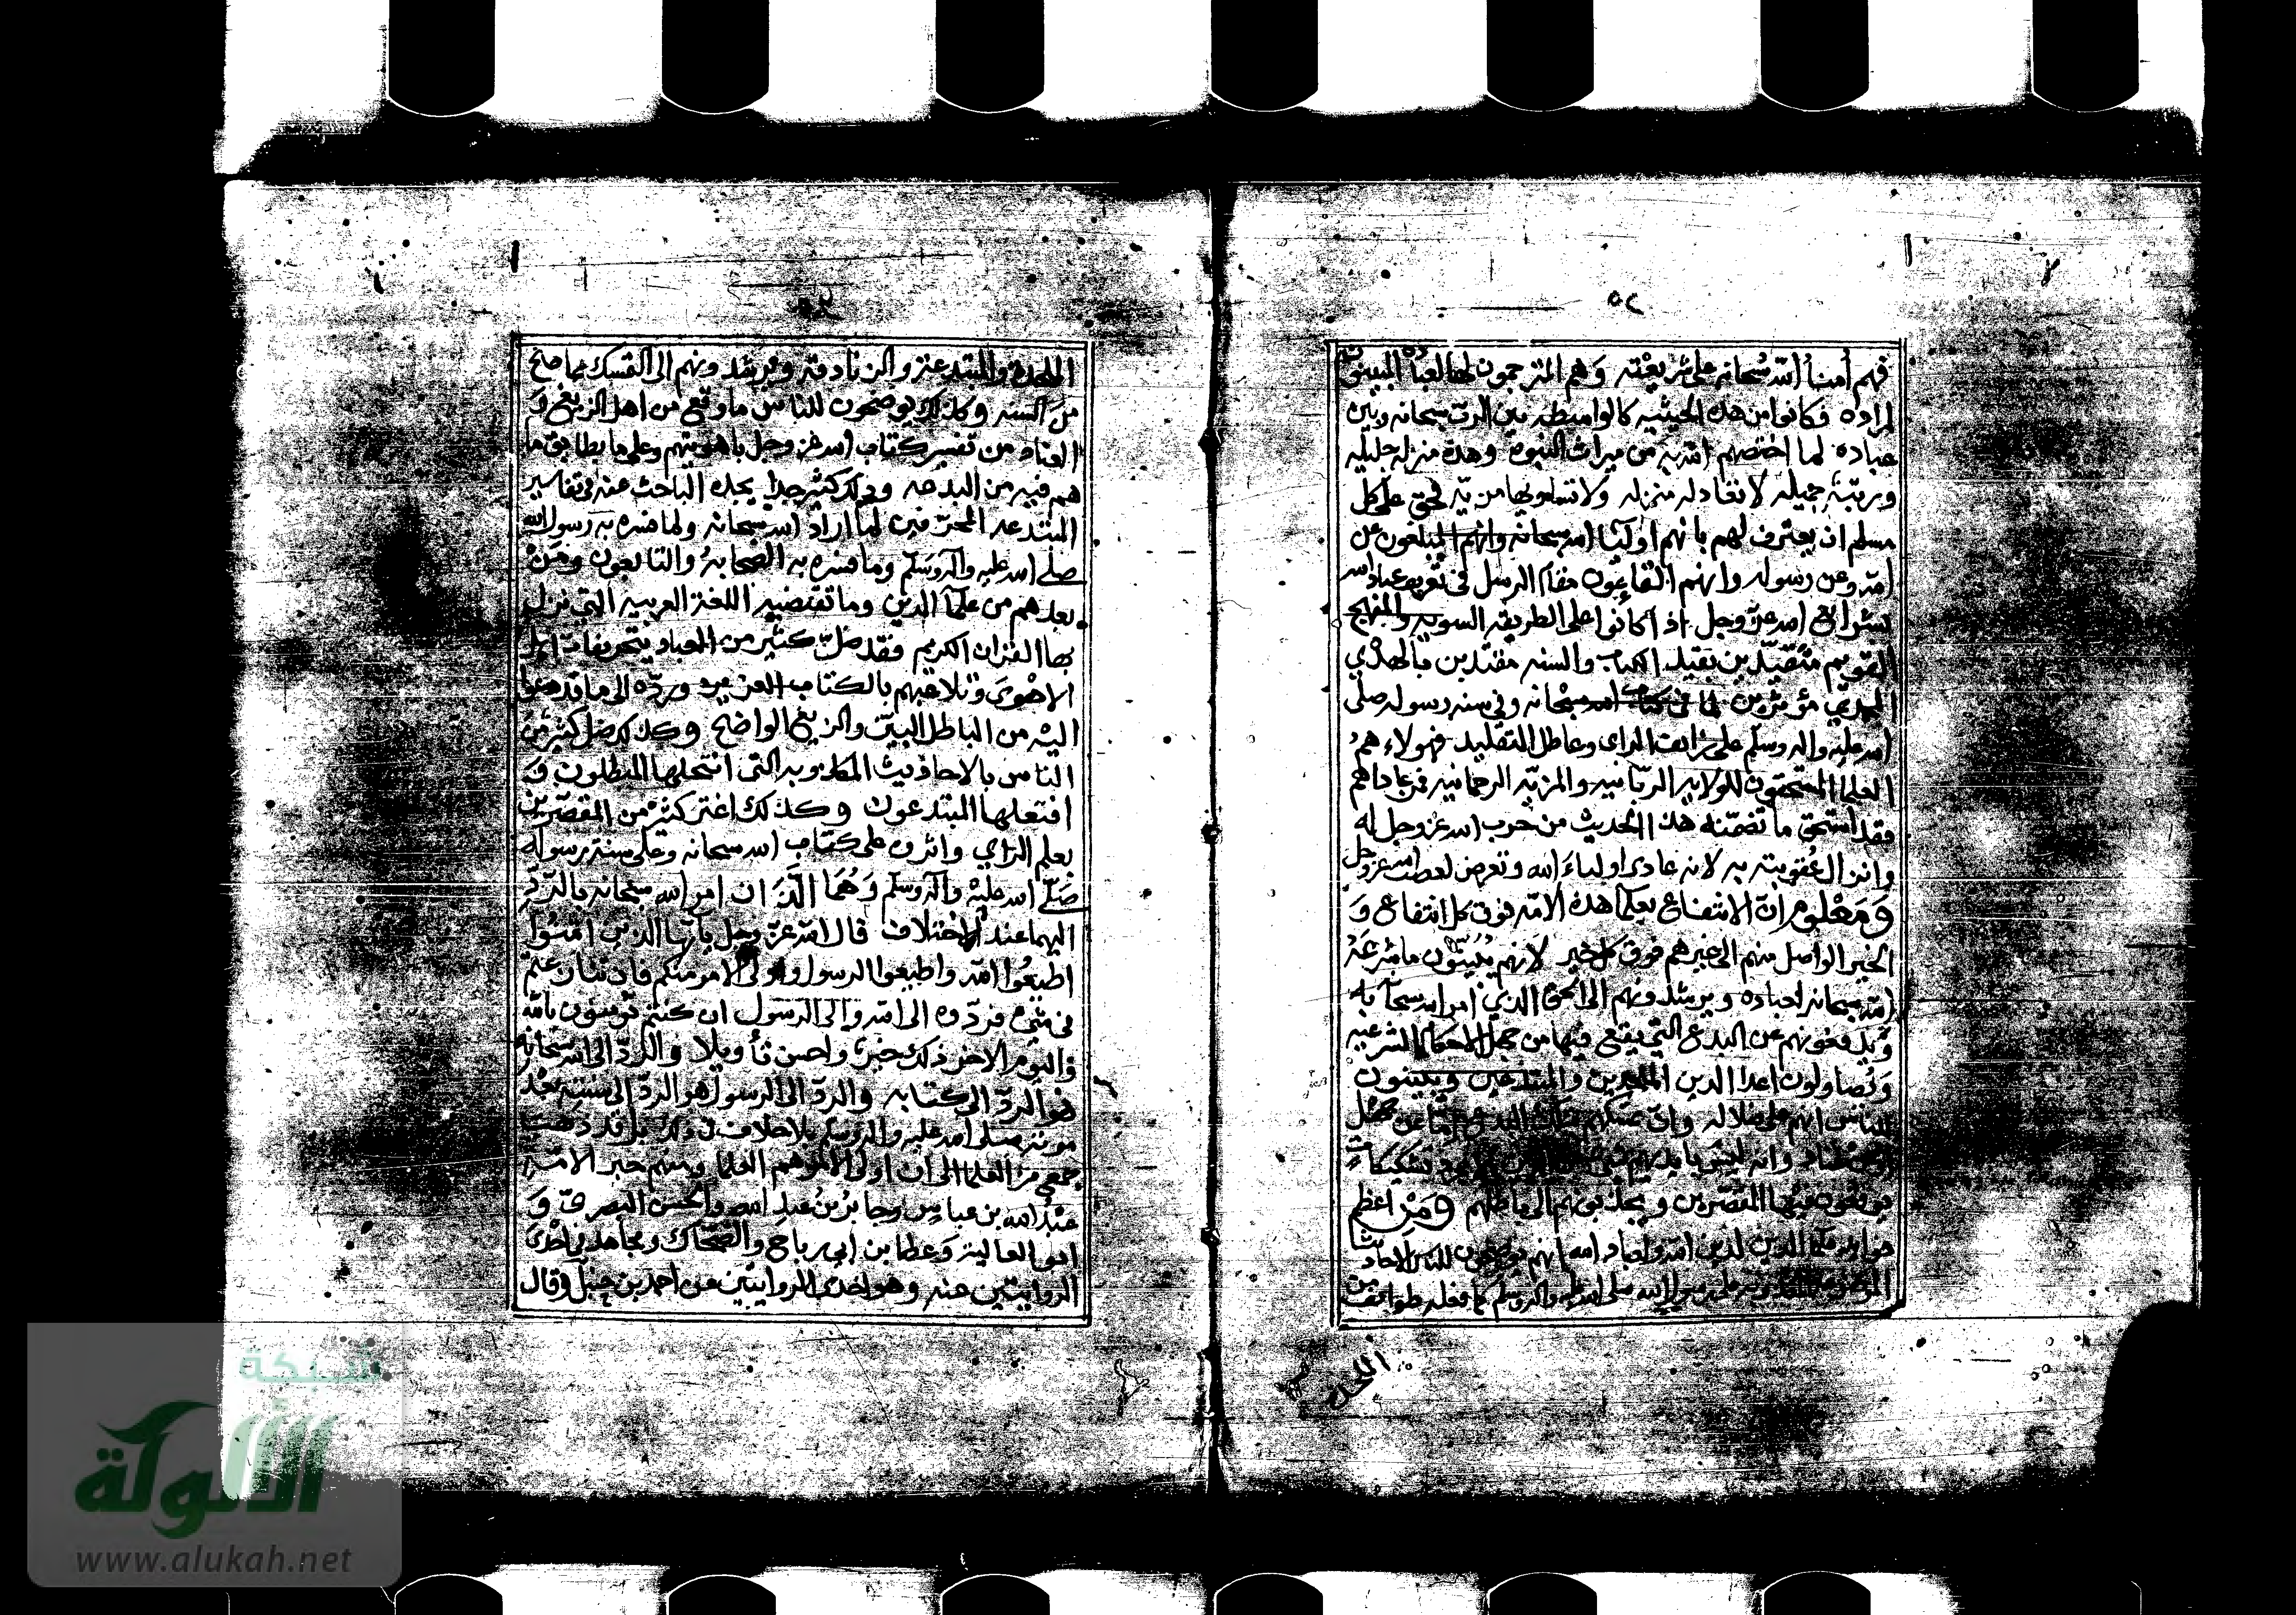 ٥٢
فهم أمناء الله سبحانه على شريعته وهم المترجمون لها لعباده المبينون
لمراده فكانوا من هذه الحيثيه كالواسطه بين الرب سبحانه وبين
عباده لما اختصهم الله به من ميراث النبوه وهذه منزله جليله
ورتبة جميله لا تعادلها منزله ولا تساويها مزيّه فحق على كل
مسلم ان يعترف لهم بانهم اوليآ الله سبحانه وانهم المبلغون عن
الله وعن رسوله وانهم القائمون مقام الرسل في تعريف عباد الله
بشرايع الله عز وجل اذا كانوا على الطريقه السويه والمنهج
القويم متقيّدين بقيد الكتاب والسنه مقتدين بالهدي
المحمدي مؤثرين لما في كتاب الله سبحانه وفي سنه رسوله صلى
الله عليه واله وسلم على زايف الراى وعاطل التقليد فهولاء هم
العلما المستحقون للولايه الربّانيه والمزيّه الرحمانيه فمن عاداهم
فقد استحق ما تضمنه هذا الحديث من حرب الله عز وجل له
وانزال عقوبته به لانه عادى اولياء الله وتعرض لغضب الله عز وجل
ومعلوم انّ الانتفاع بعلما هذه الامه فوق كل انتفاع و
الخير الواصل منهم الى غيرهم فوق كل خير لانهم يبيّنون ما شرعه
الله سبحانه لعباده ويرشدونهم الى الحق الذي امر الله سبحانه به
ويدفعونهم عن البدع التي يقع فيها من جهل الاحكام الشرعيه
ويصاولون اعدا الدين الملحدين والمبتدعين ويبينون
للناس انهم على ضلاله وانّ تمسكهم بتلك البدع اما عن جهل
او عن عناد وانه ليس بايديهم شي تشكيكات
يوقعون فيها المقصّرين ويجذبونهم الى باطلهم ومن اعظم
فوايد علما الدين لدين الله ولعباد الله انهم يوضحون للناس الاحاديث
المكذوبه على رسول الله صلى الله عليه واله وسلم كما فعله طوائف من
الملحدة
الملحدة والمبتدعة والزنادقة ويرشدونهم الى التمسك بما صح
من السنه وكذلك يوضحون للناس ما وقع من اهل الزيغ و
العناد من تفسير كتاب الله عز وجل باهويتهم وعلى ما يطابق ما
هم فيه من البدعه وذلك كثير جدا يجده الباحث عنه في تفاسير
المبتدعه المحرّفين لما اراد الله سبحانه ولما فسره به رسول الله
صلى الله عليه وآله وسلم وما فسره به الصحابة والتابعون ومن
بعدهم من علمآ الدين وما تقتضيه اللغة العربيه التي نزل
بها القران الكريم فقد ضلّ كثير من العباد بتحريفات اهل
الاهوى وتلاعبهم بالكتاب العزيز وردّه الى ما قد دعوا
اليه من الباطل البيّن والزيغ الواضح وكذلك ضل كثير من
الناس بالاحاديث المكذوبه التى انتحلها المبطلون و
افتعلها المبتدعون وكذلك اغتر كثير من المقصّرين
بعلم الراي واثروه على كتاب الله سبحانه وعلى سنة رسوله
صلّى الله عليه وآله وسلم وهما اللّذان امر الله سبحانه بالردّ
اليهما عند الاختلاف قال الله عزّ وجل يأيّها الذين آمنوا
اطيعوا الله واطيعوا الرسول واولى الامر منكم فان تنازعتم
في شيء فردّوه الى الله والى الرسول ان كنتم تؤمنون بالله
واليوم الاخر ذلك خير واحسن تأويلا والردّ الى الله سبحانه
هو الردّ الى كتابه والردّ الى الرسول هو الردّ الى سنته بعد
موته صلى الله عليه واله وسلم بلا خلاف في ذلك بل قد ذهب
جمع من العلما الى ان اولى الامر هم العلما ومنهم حبر الامّة
عبد الله بن عباس وجابر بن عبد الله والحسن البصريّ و
ابو العالية وعطا بن ابي رباح والضحّاك ومجاهد في احدى
الروايتين عنه وهو احدى الروايتين عن احمد بن حنبل وقال
شبكة
الألوكة
www.alukah.net